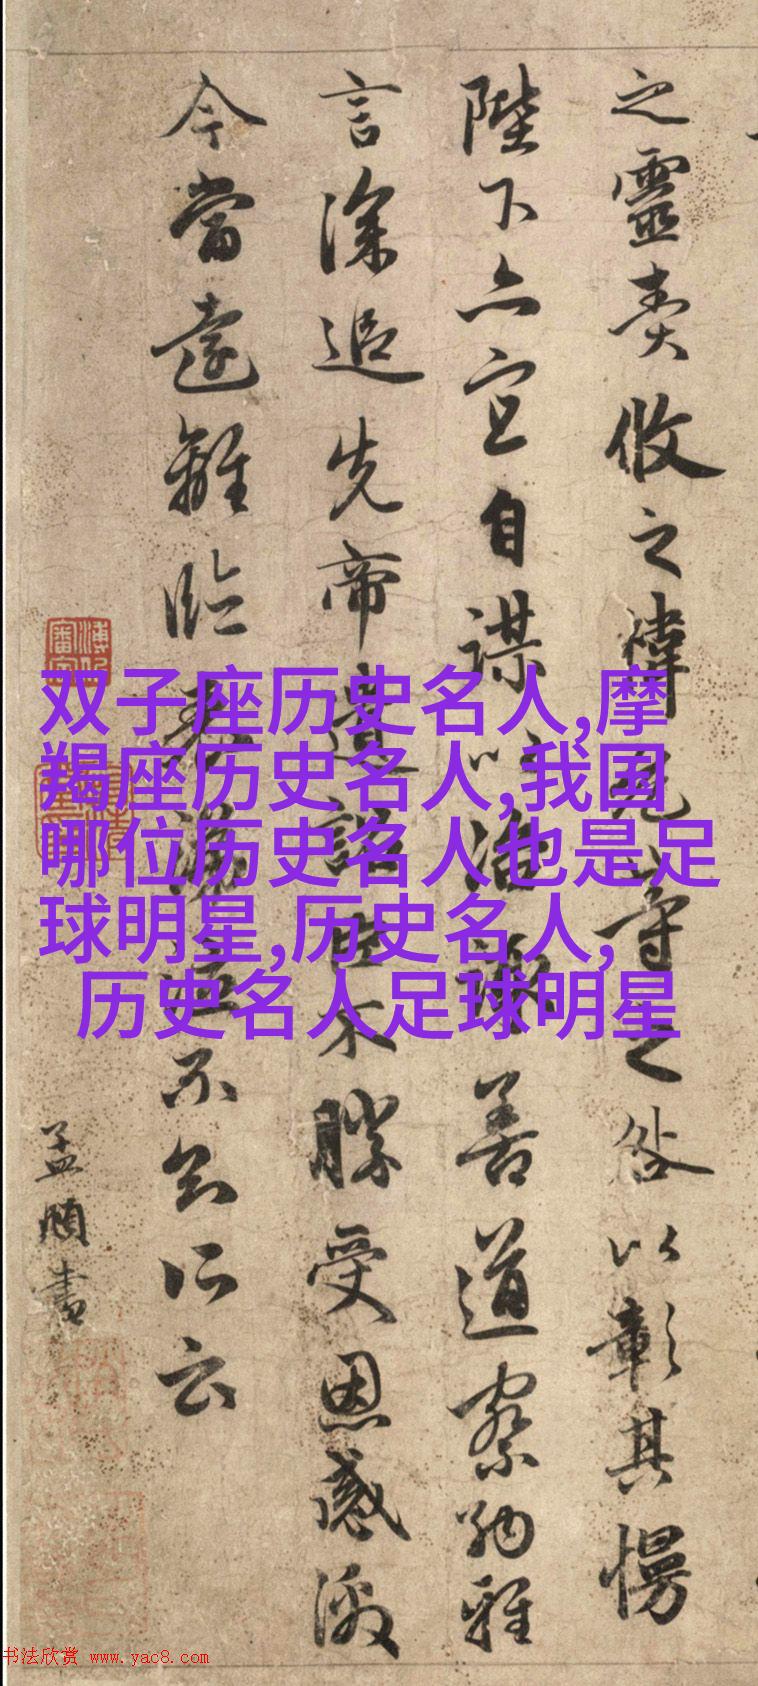 之靈責攸之禕允等之咎以彰其慢
陛下亦宜自謀以咨諏善道察納雅
言深追先帝遺詔臣不勝受恩感激
今當遠離臨表涕泣不知所云
孟頫書
双子座历史名人,摩
羯座历史名人,我国
哪位历史名人也是足
球明星,历史名人,
历史名人足球明星
书法欣赏 www.yac8.com